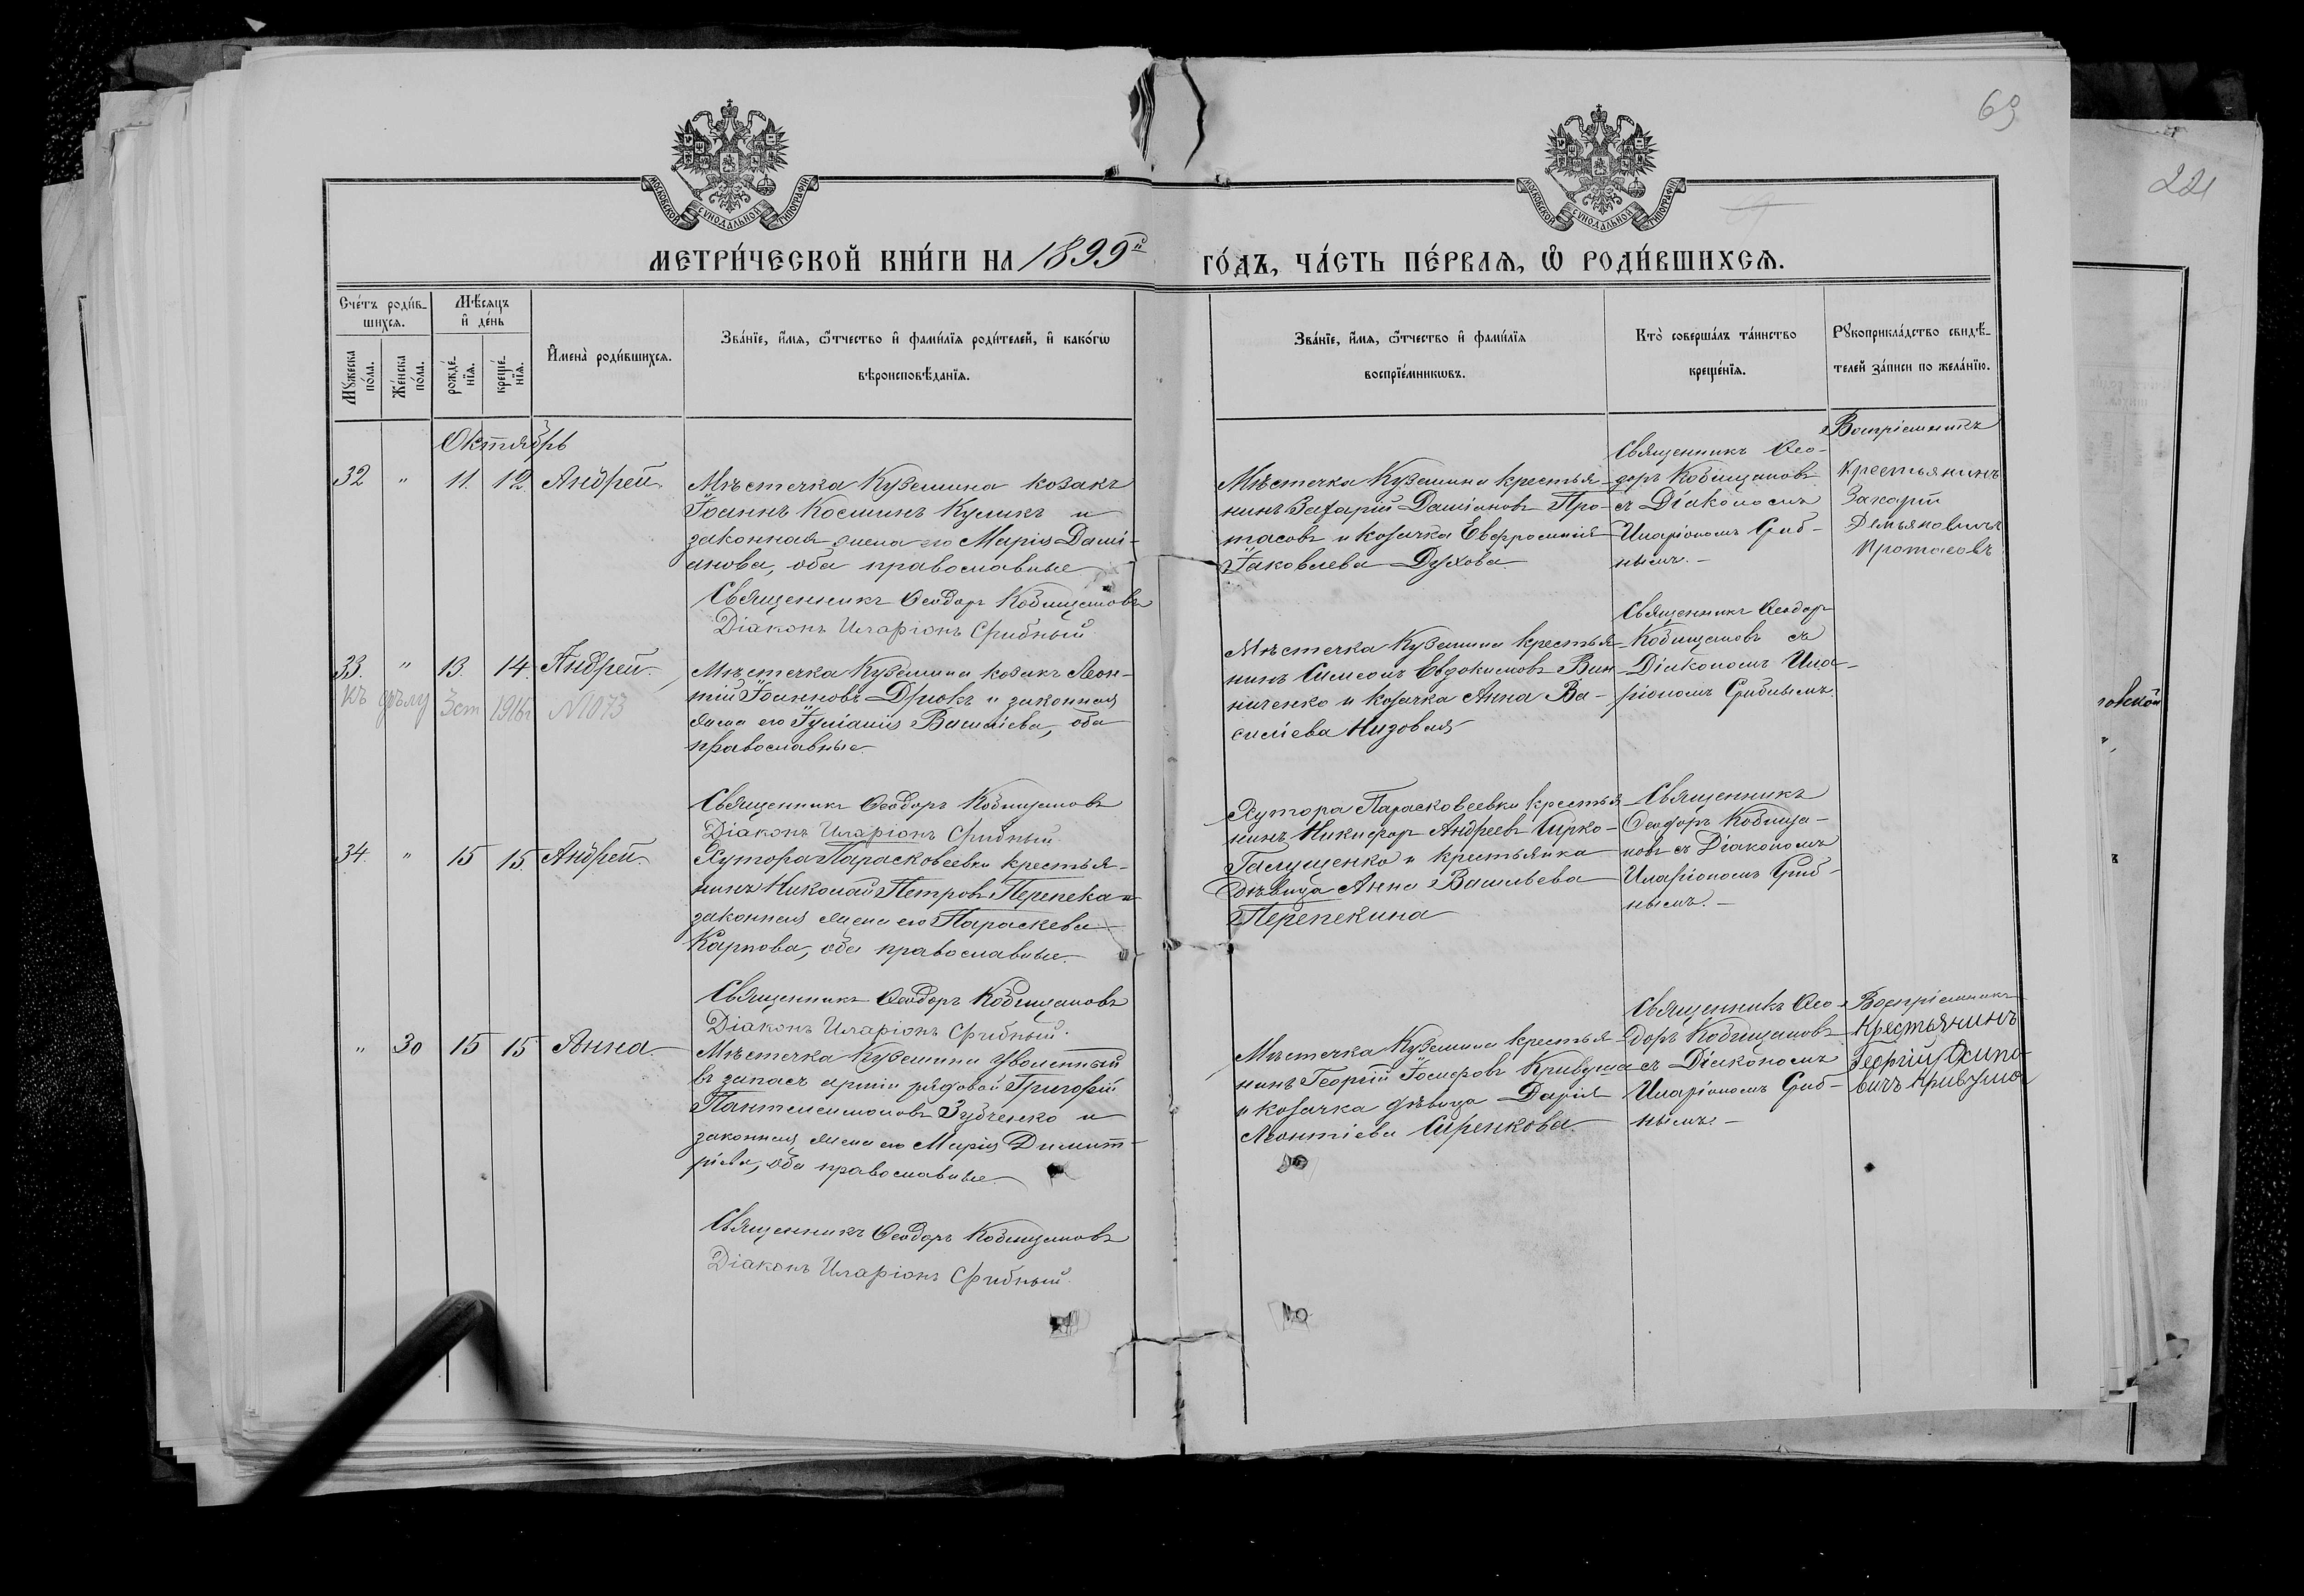 69
221
МОСКОВСКОЙ СУНОДАЛЬНОЙ ТИПОГРАФІИ
МОСКОВСКОЙ СУНОДАЛЬНОЙ ТИПОГРАФІИ
МЕТРИ́ЧЕСКОЙ КНИ́ГИ НА 1899й
ГО́ДЪ, ЧА́СТЬ ПЕ́РВАЯ, Ѡ҆ РОДИ́ВШИХСЯ.
Сче́тъ роди́в-
шихся.
Мѣ́сяцъ
и҆ де́нь
Мꙋ́жеска по́ла.
Же́нска по́ла.
рожде́-
нїя.
креще́-
нїя.
И҆мена̀ роди́вшихся.
Зва́нїе, и҆́мя, ѻ҆́тчество и҆ фами́лїя роди́телей, и҆ како́гѡ
вѣроисповѣ́данїя.
Зва́нїе, и҆́мя, ѻ҆́тчество и҆ фами́лїя
воспрїе́мниковъ.
Кто̀ соверша́лъ та́инство
креще́нїя.
Рꙋкоприкла́дство свидѣ́-
телей за́писи по жела́нїю.
Октябрь
32 " 11. 12 Андрей.
Мѣстечка Куземина козакъ
Іоаннъ Косминъ Куликъ и
законная жена его Марія Дамі-
анова, оба православные
Священникъ Ѳеодоръ Кобищановъ
Діаконъ Иларіонъ Срибный.
Мѣстечка Куземина крестья-
нинъ Захарій Даміановъ Про-
тасовъ и козачка Евфросинія
Іаковлева Духова.
Священникъ Ѳео-
доръ Кобищановъ
съ Діакономъ
Иларіономъ Сриб-
нымъ. -
Воспріемникъ
Крестьянинъ
Захарій
Демьяновичъ
Протасовъ
33. " 13. 14. Андрей.
къ дѣлу 3 ст 1916г N1073
Мѣстечка Куземина козакъ Леон-
тій Іоанновъ Дрюкъ и законная
жена его Іуліанія Василіева, оба
православные.
Священникъ Ѳеодоръ Кобищановъ
Діаконъ Иларіонъ Срибный.
Мѣстечка Куземина крестья-
нинъ Симеонъ Евдокимовъ Вин-
ниченко и козачка Анна Ва-
силіева Низовая
Священникъ Ѳеодоръ
Кобищановъ съ
Діакономъ Ила-
ріономъ Срибнымъ.
34. " 15 15. Андрей.
Хутора Парасковеевки крестья-
нинъ Николай Петровъ Перепека и
законная жена его Параскева
Карпова, оба православные.
Священникъ Ѳеодоръ Кобищановъ
Діаконъ Иларіонъ Срибный.
Хутора Парасковеевки крестья-
нинъ Никифоръ Андреевъ Сирко-
Галущенко и крестьянка
дѣвица Анна Васильева
Перепекина
Священникъ
Ѳеодоръ Кобища-
новъ съ Діакономъ
Иларіономъ Сриб-
нымъ. -
" 30 15 15 Анна.
Мѣстечка Куземина уволенный
въ запасъ арміи рядовой Григорій
Пантелеимоновъ Зубченко и
законная жена его Марія Димит-
ріева, оба православные.
Священникъ Ѳеодоръ Кобищановъ
Діаконъ Иларіонъ Срибный.
Мѣстечка Куземина крестья-
нинъ Георгій Іосифовъ Кривуша
и козачка дѣвица Дарія
Леонтіева Сиренкова.
Священникъ Ѳео-
доръ Кобищановъ
съ Діакономъ
Иларіономъ Сриб-
нымъ. -
Воспріемникъ
Крестьянинъ
Георгій Осипо-
вичъ Кривуша